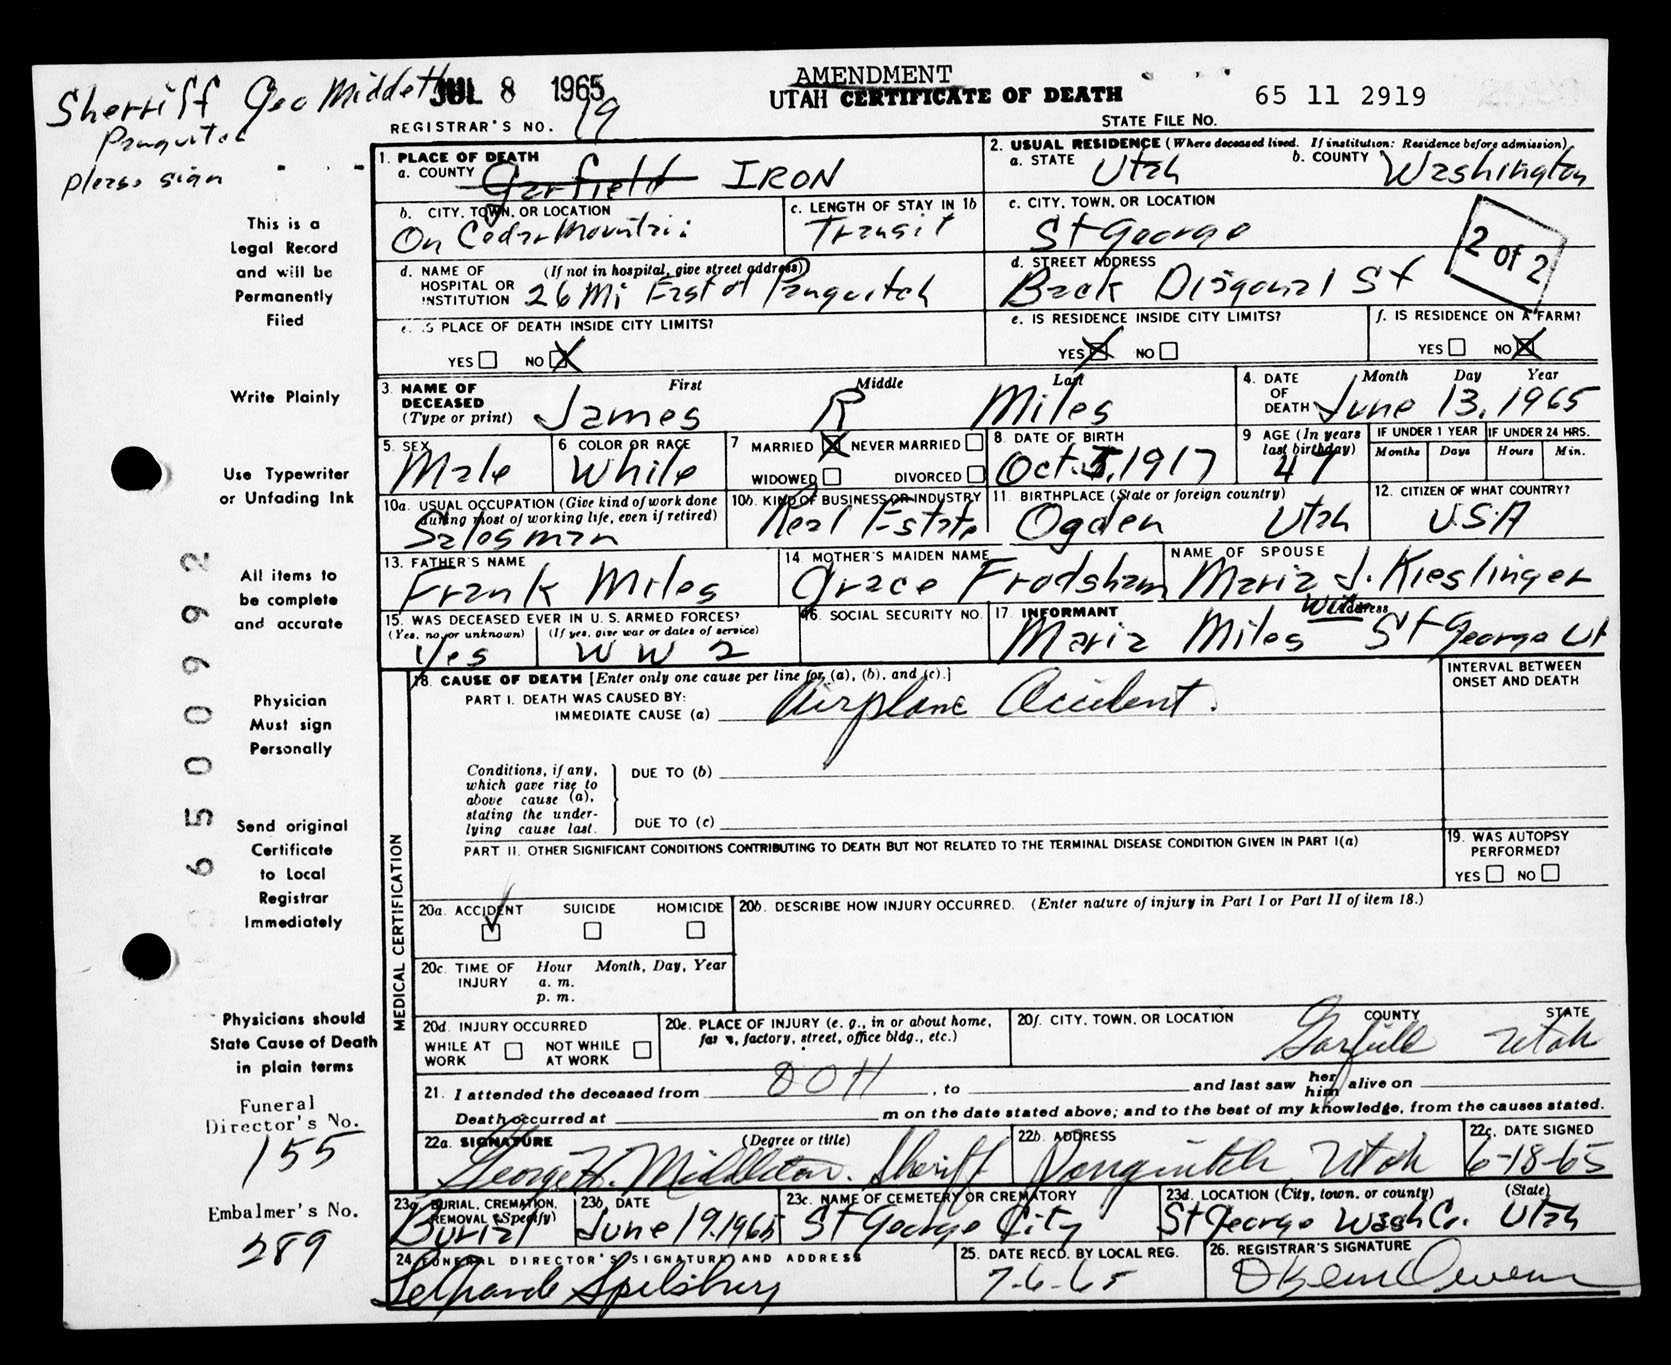 AMENDMENT
Sherriff Geo Middet JUL 8 1965 UTAH CERTIFICATE OF DEATH 65 11 2919
Panguitch REGISTRAR'S NO. 19 STATE FILE NO.
please sign
2 of 2
1. PLACE OF DEATH
a. COUNTY Garfield IRON
2. USUAL RESIDENCE (Where deceased lived. If institution: Residence before admission)
a. STATE Utah b. COUNTY Washington
b. CITY, TOWN, OR LOCATION On Cedar Mountain
c. LENGTH OF STAY IN 1b Transit
c. CITY, TOWN, OR LOCATION
St George
d. NAME OF HOSPITAL OR INSTITUTION (If not in hospital, give street address)
26 Mi East of Panguitch
d. STREET ADDRESS
Back Diagonal St
e. IS PLACE OF DEATH INSIDE CITY LIMITS?
YES NO X
e. IS RESIDENCE INSIDE CITY LIMITS?
YES X NO
f. IS RESIDENCE ON A FARM?
YES NO X
3. NAME OF DECEASED (Type or print) First Middle Last
James R Miles
4. DATE OF DEATH Month Day Year
June 13, 1965
5. SEX
Male
6 COLOR OR RACE
White
7 MARRIED X NEVER MARRIED
WIDOWED DIVORCED
8. DATE OF BIRTH
Oct. 1917
9 AGE (In years last birthday)
47
IF UNDER 1 YEAR IF UNDER 24 HRS.
Months Days Hours Min.
10a. USUAL OCCUPATION (Give kind of work done during most of working life, even if retired)
Salesman
10b. KIND OF BUSINESS OR INDUSTRY
Real Estate
11. BIRTHPLACE (State or foreign country)
Ogden Utah
12. CITIZEN OF WHAT COUNTRY?
USA
13. FATHER'S NAME
Frank Miles
14 MOTHER'S MAIDEN NAME
Grace Frodsham
NAME OF SPOUSE
Maria J. Kieslinger
15. WAS DECEASED EVER IN U. S. ARMED FORCES?
(Yes, no, or unknown) (If yes, give war or dates of service)
Yes WW 2
16. SOCIAL SECURITY NO.
17. INFORMANT Address
Maria Miles Wife St George Ut
18. CAUSE OF DEATH [Enter only one cause per line for (a), (b), and (c).]
INTERVAL BETWEEN ONSET AND DEATH
PART I. DEATH WAS CAUSED BY:
IMMEDIATE CAUSE (a) Airplane Accident.
Conditions, if any, which gave rise to above cause (a), stating the underlying cause last.
DUE TO (b)
DUE TO (c)
PART II. OTHER SIGNIFICANT CONDITIONS CONTRIBUTING TO DEATH BUT NOT RELATED TO THE TERMINAL DISEASE CONDITION GIVEN IN PART I(a)
19. WAS AUTOPSY PERFORMED?
YES NO
MEDICAL CERTIFICATION
20a. ACCIDENT SUICIDE HOMICIDE
20b. DESCRIBE HOW INJURY OCCURRED. (Enter nature of injury in Part I or Part II of item 18.)
20c. TIME OF INJURY Hour Month, Day, Year
a. m.
p. m.
20d. INJURY OCCURRED
WHILE AT WORK NOT WHILE AT WORK
20e. PLACE OF INJURY (e. g., in or about home, farm, factory, street, office bldg., etc.)
20f. CITY, TOWN, OR LOCATION COUNTY STATE
Garfield Utah
21. I attended the deceased from DOA, to and last saw her him alive on
Death occurred at m on the date stated above; and to the best of my knowledge, from the causes stated.
22a. SIGNATURE (Degree or title)
George H. Middleton. Sheriff
22b. ADDRESS
Panguitch Utah
22c. DATE SIGNED
6-18-65
23a. BURIAL, CREMATION, REMOVAL (Specify)
Burial
23b. DATE
June 19, 1965
23c. NAME OF CEMETERY OR CREMATORY
St George City
23d. LOCATION (City, town, or county) (State)
St George Wash Co. Utah
24. FUNERAL DIRECTOR'S SIGNATURE AND ADDRESS
Spilsbury
25. DATE RECD. BY LOCAL REG.
7-6-65
26. REGISTRAR'S SIGNATURE
This is a
Legal Record
and will be
Permanently
Filed
Write Plainly
Use Typewriter
or Unfading Ink
All items to
be complete
and accurate
Physician
Must sign
Personally
Send original
Certificate
to Local
Registrar
Immediately
Physicians should
State Cause of Death
in plain terms
Funeral
Director's No.
155
Embalmer's No.
289
6500992